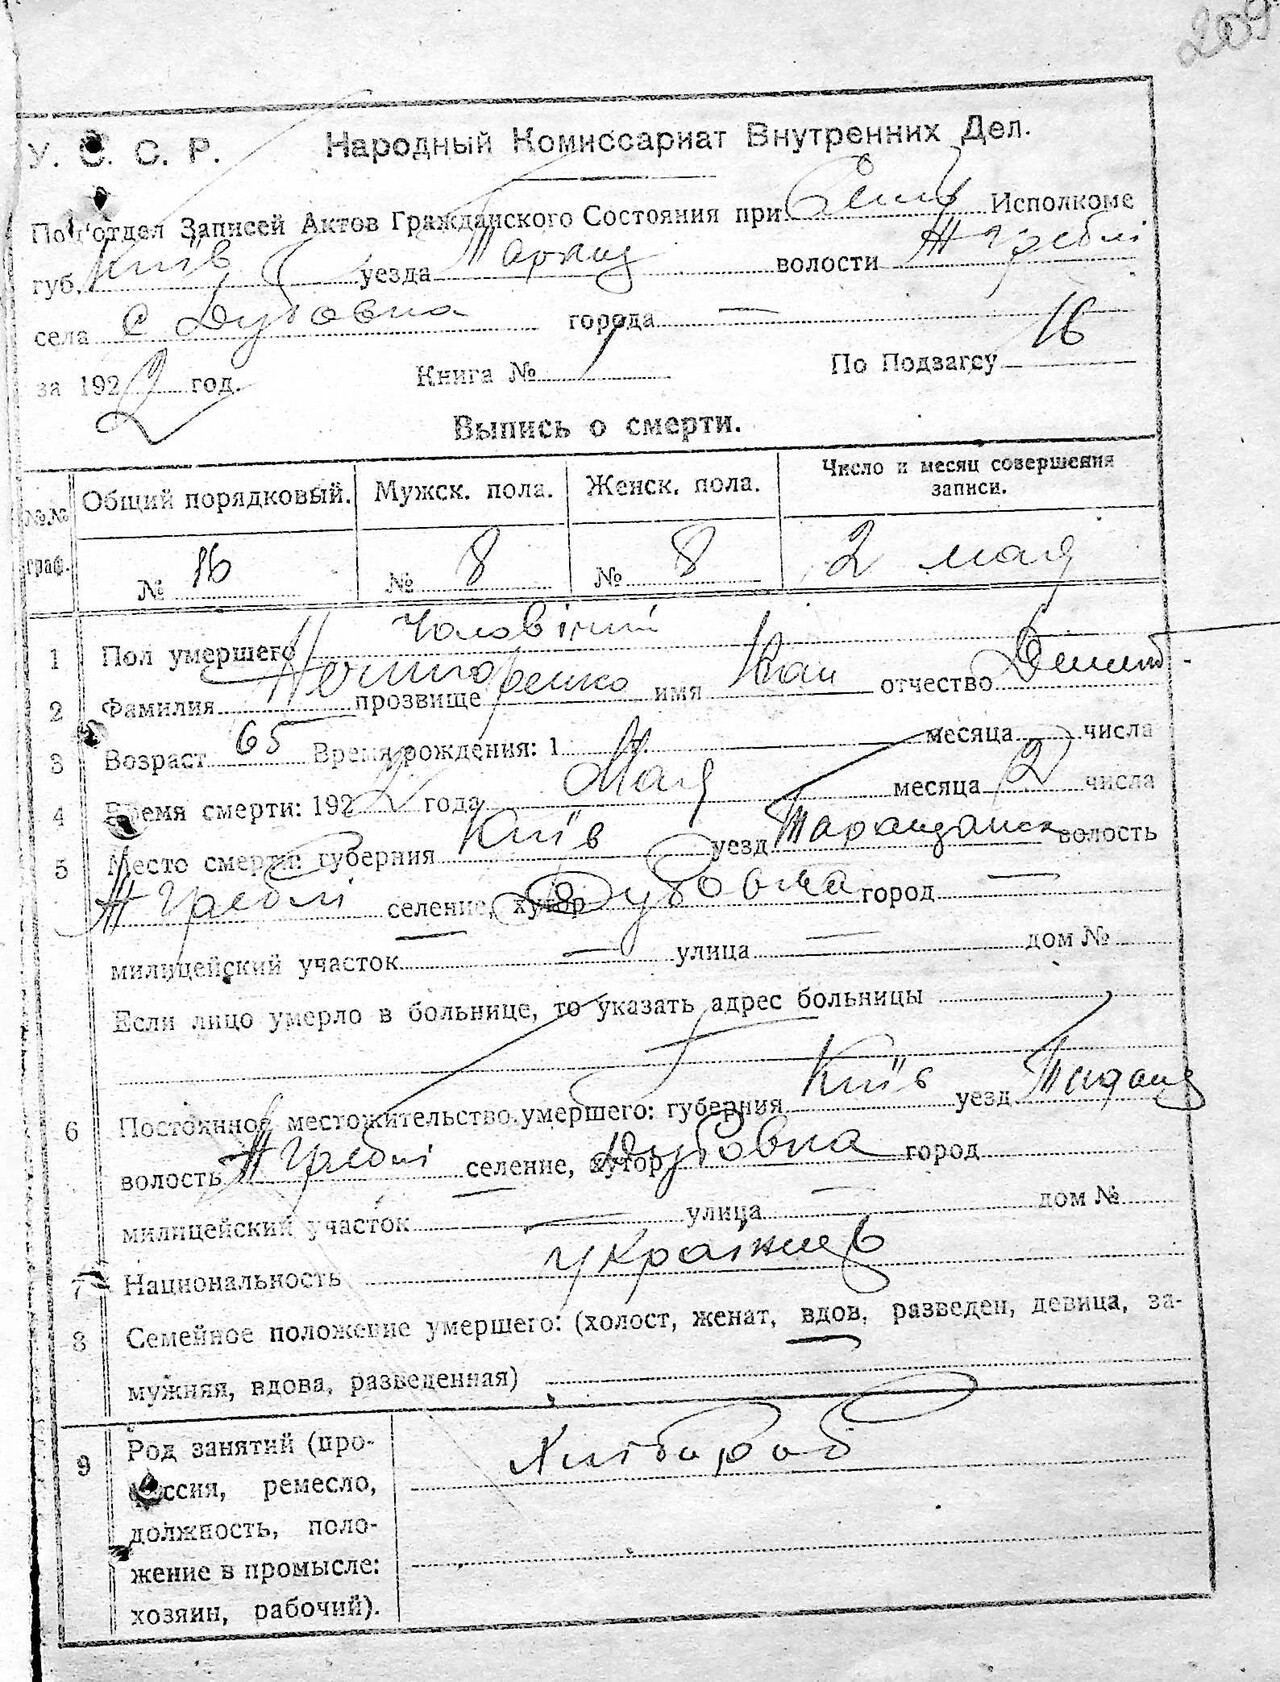 209
У. С. С. Р. Народный Комиссариат Внутренних Дел.
Под'отдел Записей Актов Гражданского Состояния при Исполкоме
губ. Київ уезда волости Жгребли
села с Дубовка города —
за 1922 год. Книга № 1 По Подзагсу 16
Выпись о смерти.
№№ граф. Общий порядковый. Мужск. пола. Женск. пола. Число и месяц совершения записи.
№ 16 № 8 № 8 2 мая
1 Пол умершего
2 Фамилия прозвище имя Іван отчество
3 Возраст 65 Время рождения: 1 месяца числа
4 Время смерти: 1922 года Мая месяца 2 числа
5 Место смерти: губерния Київ уезд волость
Жгребли селение, хутор Дубовка город —
милицейский участок — улица — дом №
Если лицо умерло в больнице, то указать адрес больницы
6 Постоянное местожительство умершего: губерния Київ уезд
волость Жгребли селение, хутор Дубовка город
милицейский участок — улица — дом №
7 Национальность українець
8 Семейное положение умершего: (холост, женат, вдов, разведен, девица, за-
мужняя, вдова, разведенная)
9 Род занятий (про-
фессия, ремесло,
должность, поло-
жение в промысле:
хозяин, рабочий).
Хлібороб